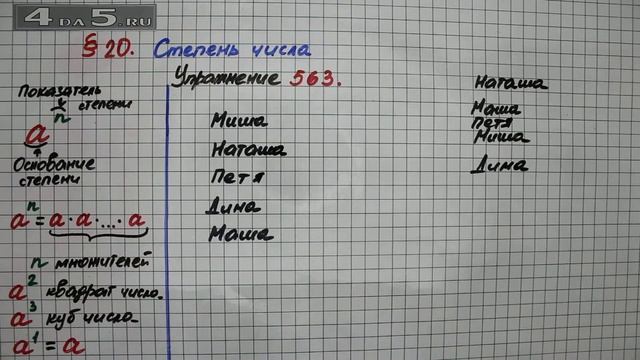 4DA5.RU
§ 20. Степень числа
Упражнение 563.
Показатель
степени
n
a
Основание
степени
aⁿ = a · a · ... · a
n множителей
a² квадрат число
a³ куб число
a¹ = a
Миша
Наташа
Петя
Дима
Маша
Наташа
Маша
Петя
Миша
Дима